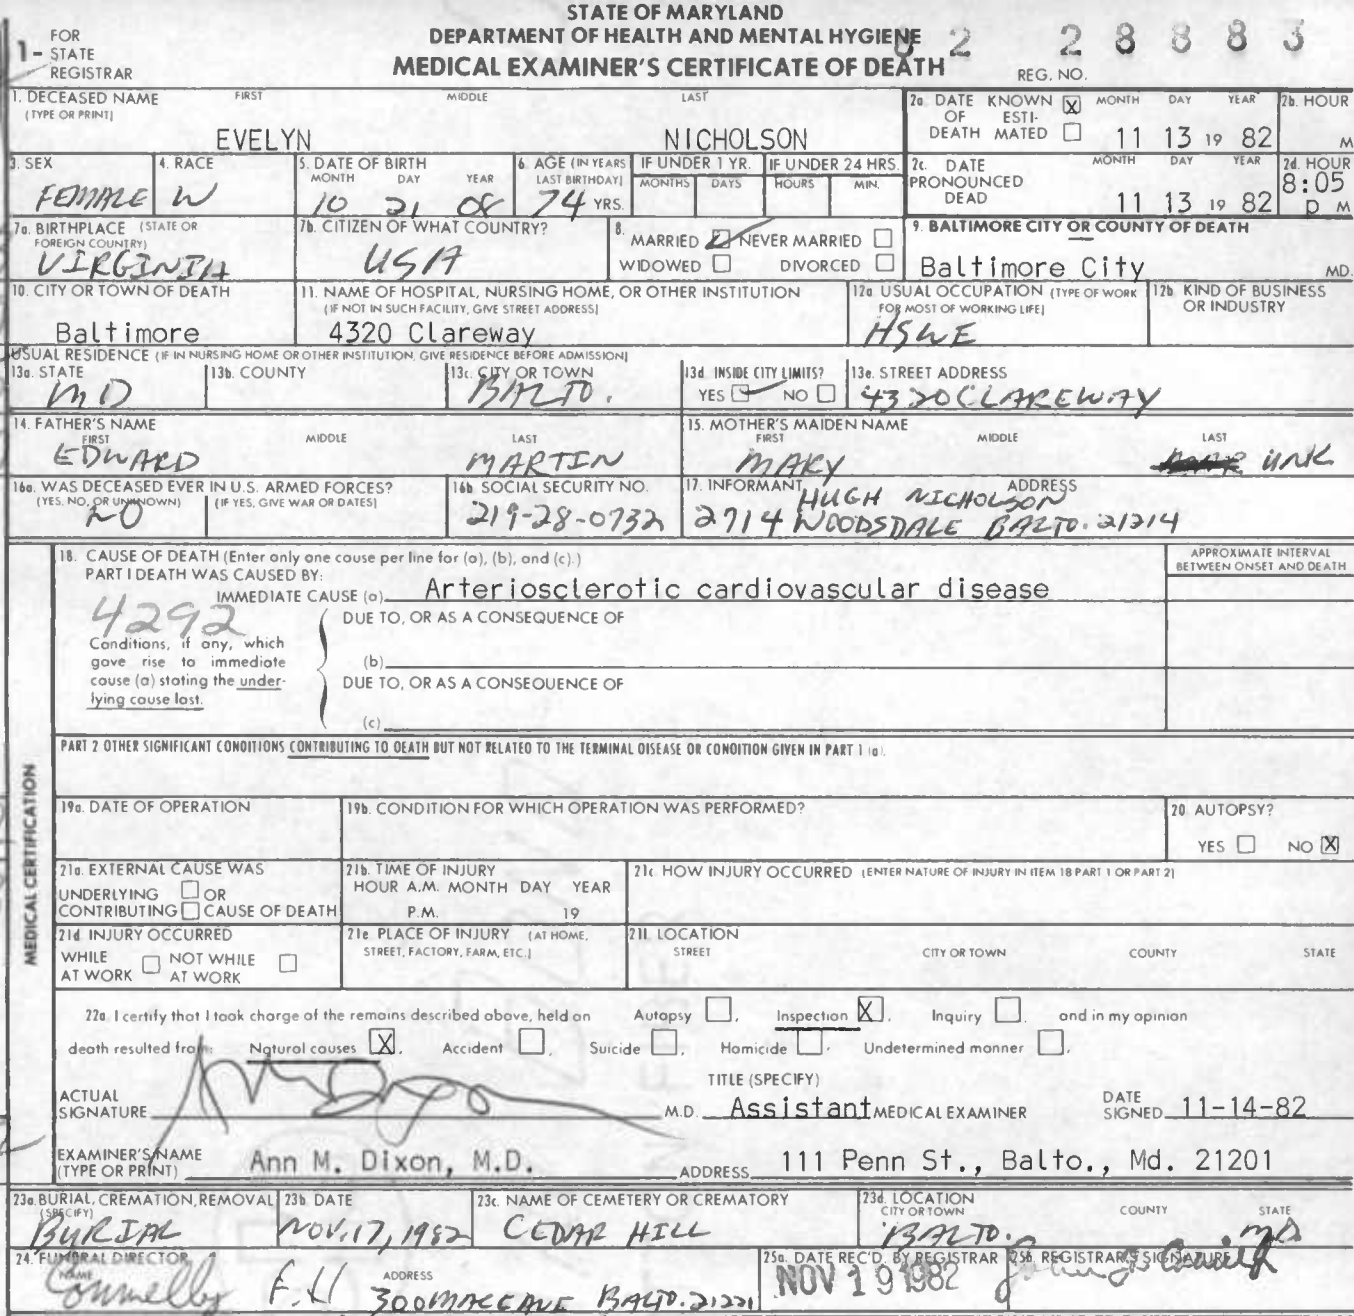 STATE OF MARYLAND
DEPARTMENT OF HEALTH AND MENTAL HYGIENE
MEDICAL EXAMINER'S CERTIFICATE OF DEATH
1- FOR STATE REGISTRAR
REG. NO. 82 28883
1. DECEASED NAME (TYPE OR PRINT) FIRST MIDDLE LAST
EVELYN NICHOLSON
2a. DATE OF DEATH KNOWN X ESTIMATED MONTH DAY YEAR
11 13 19 82
2b. HOUR M
3. SEX FEMALE
4. RACE W
5. DATE OF BIRTH MONTH DAY YEAR
10 21 08
6. AGE (IN YEARS LAST BIRTHDAY) 74 YRS.
IF UNDER 1 YR. MONTHS DAYS
IF UNDER 24 HRS. HOURS MIN.
2c. DATE PRONOUNCED DEAD MONTH DAY YEAR
11 13 19 82
2d. HOUR 8:05 p M
7a. BIRTHPLACE (STATE OR FOREIGN COUNTRY)
VIRGINIA
7b. CITIZEN OF WHAT COUNTRY?
USA
8. MARRIED NEVER MARRIED
WIDOWED DIVORCED
9. BALTIMORE CITY OR COUNTY OF DEATH
Baltimore City MD.
10. CITY OR TOWN OF DEATH
Baltimore
11. NAME OF HOSPITAL, NURSING HOME, OR OTHER INSTITUTION
(IF NOT IN SUCH FACILITY, GIVE STREET ADDRESS)
4320 Clareway
12a. USUAL OCCUPATION (TYPE OF WORK FOR MOST OF WORKING LIFE)
HSWE
12b. KIND OF BUSINESS OR INDUSTRY
USUAL RESIDENCE (IF IN NURSING HOME OR OTHER INSTITUTION, GIVE RESIDENCE BEFORE ADMISSION)
13a. STATE MD
13b. COUNTY
13c. CITY OR TOWN BALTO.
13d. INSIDE CITY LIMITS? YES NO
13e. STREET ADDRESS
4320 CLAREWAY
14. FATHER'S NAME FIRST MIDDLE LAST
EDWARD MARTIN
15. MOTHER'S MAIDEN NAME FIRST MIDDLE LAST
MARY UNK
16a. WAS DECEASED EVER IN U.S. ARMED FORCES?
(YES, NO, OR UNKNOWN) (IF YES, GIVE WAR OR DATES)
NO
16b. SOCIAL SECURITY NO.
219-28-0732
17. INFORMANT ADDRESS
HUGH NICHOLSON
2714 WOODSDALE BALTO. 21214
18. CAUSE OF DEATH (Enter only one cause per line for (a), (b), and (c).)
PART I DEATH WAS CAUSED BY:
APPROXIMATE INTERVAL BETWEEN ONSET AND DEATH
IMMEDIATE CAUSE (a) Arteriosclerotic cardiovascular disease
4292
DUE TO, OR AS A CONSEQUENCE OF
Conditions, if any, which
gave rise to immediate
cause (a) stating the under-
lying cause last.
(b)
DUE TO, OR AS A CONSEQUENCE OF
(c)
PART 2 OTHER SIGNIFICANT CONDITIONS CONTRIBUTING TO DEATH BUT NOT RELATED TO THE TERMINAL DISEASE OR CONDITION GIVEN IN PART 1 (a).
MEDICAL CERTIFICATION
19a. DATE OF OPERATION
19b. CONDITION FOR WHICH OPERATION WAS PERFORMED?
20 AUTOPSY?
YES NO X
21a. EXTERNAL CAUSE WAS
UNDERLYING OR
CONTRIBUTING CAUSE OF DEATH
21b. TIME OF INJURY
HOUR A.M. MONTH DAY YEAR
P.M. 19
21c. HOW INJURY OCCURRED (ENTER NATURE OF INJURY IN ITEM 18 PART 1 OR PART 2)
21d INJURY OCCURRED
WHILE AT WORK NOT WHILE AT WORK
21e. PLACE OF INJURY (AT HOME, STREET, FACTORY, FARM, ETC.)
21f. LOCATION
STREET CITY OR TOWN COUNTY STATE
22a I certify that I took charge of the remains described above, held an Autopsy, Inspection X, Inquiry, and in my opinion
death resulted from: Natural causes X, Accident, Suicide, Homicide, Undetermined manner.
ACTUAL SIGNATURE M.D.
TITLE (SPECIFY)
Assistant MEDICAL EXAMINER
DATE SIGNED 11-14-82
EXAMINER'S NAME (TYPE OR PRINT) Ann M. Dixon, M.D.
ADDRESS 111 Penn St., Balto., Md. 21201
23a. BURIAL, CREMATION, REMOVAL (SPECIFY)
BURIAL
23b. DATE
NOV. 17, 1982
23c. NAME OF CEMETERY OR CREMATORY
CEDAR HILL
23d. LOCATION CITY OR TOWN COUNTY STATE
BALTO. MD
24. FUNERAL DIRECTOR NAME
Connelly F.H
ADDRESS
300 MACE AVE BALTO. 21221
25a. DATE REC'D. BY REGISTRAR
NOV 19 1982
25b. REGISTRAR'S SIGNATURE